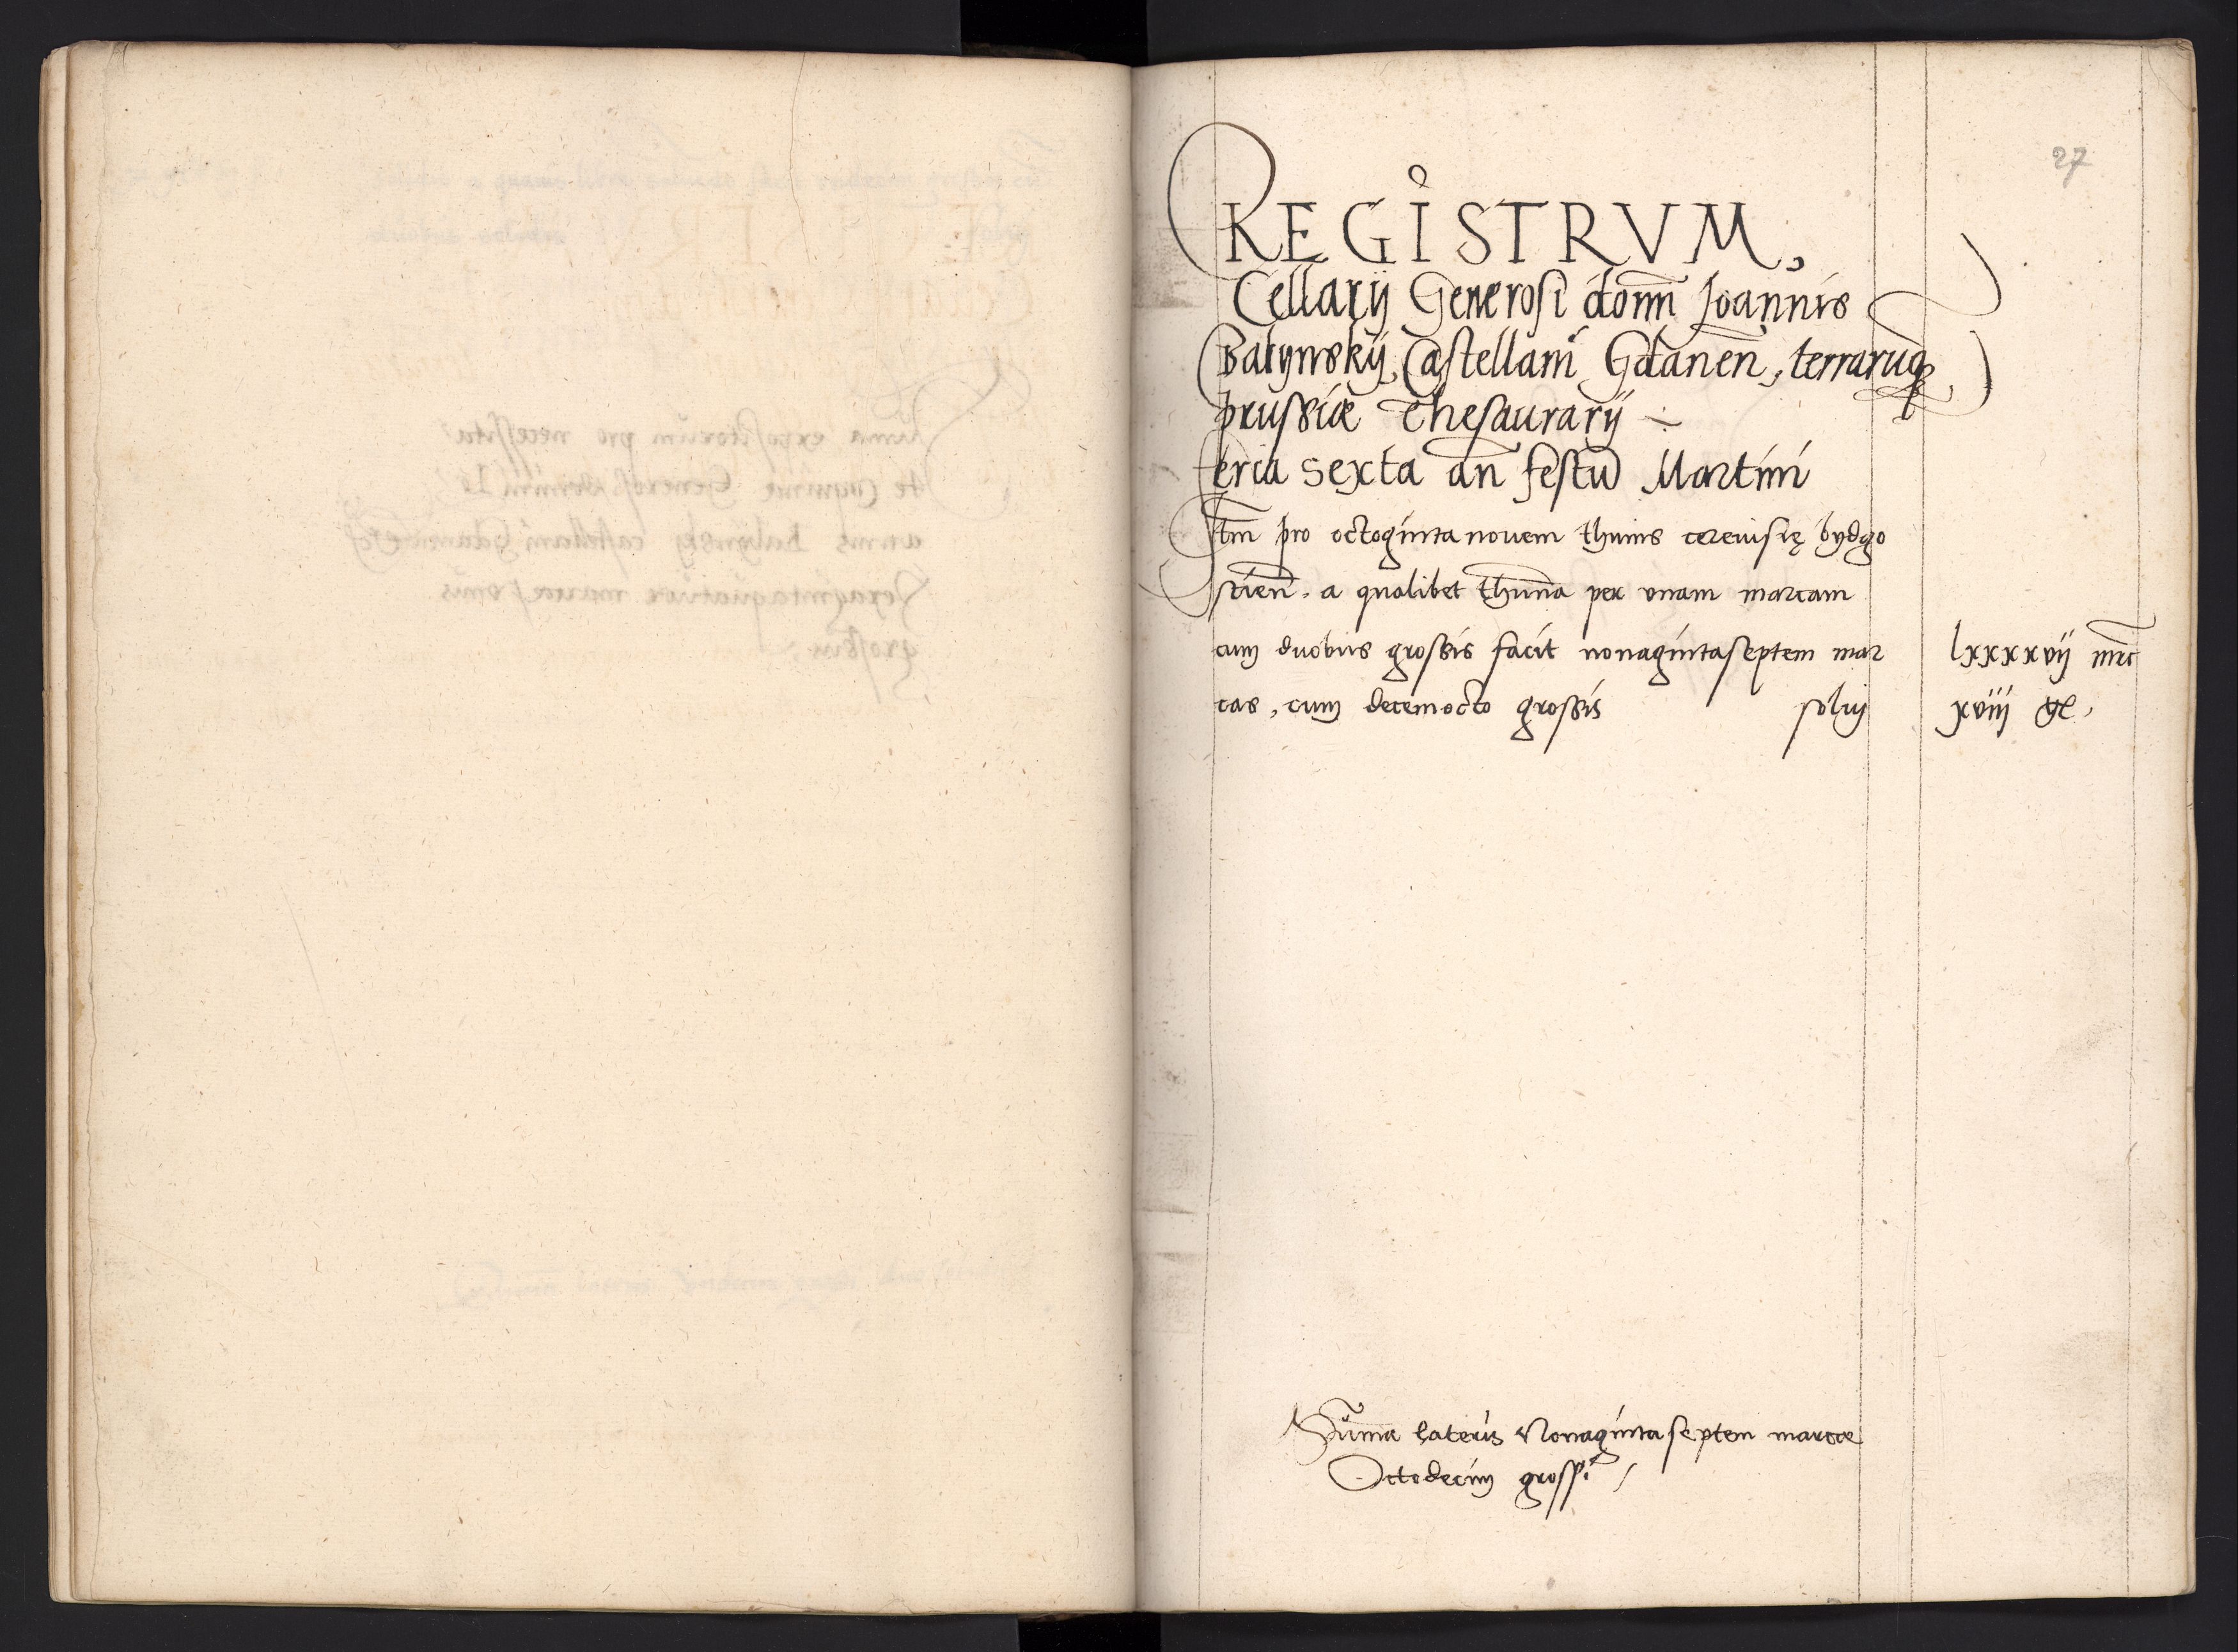 27
REGISTRVM,
Cellarij Generosi domi Joannis
Balynskij, Castellani Gdanen, terrarūq
prussiæ Thesaurarij
Feria sexta an festū Martini
Itm pro octoginta novem thunis cerevisię bydgo
stien. a qualibet thunna per vnam marcam
cum duobus grossis facit nonagintaseptem mar lxxxxvij mrc
cas, cum decemocto grossis solvj xviij gr.
Summa lateris Nonagintaseptem marcæ
Octodecim grossi